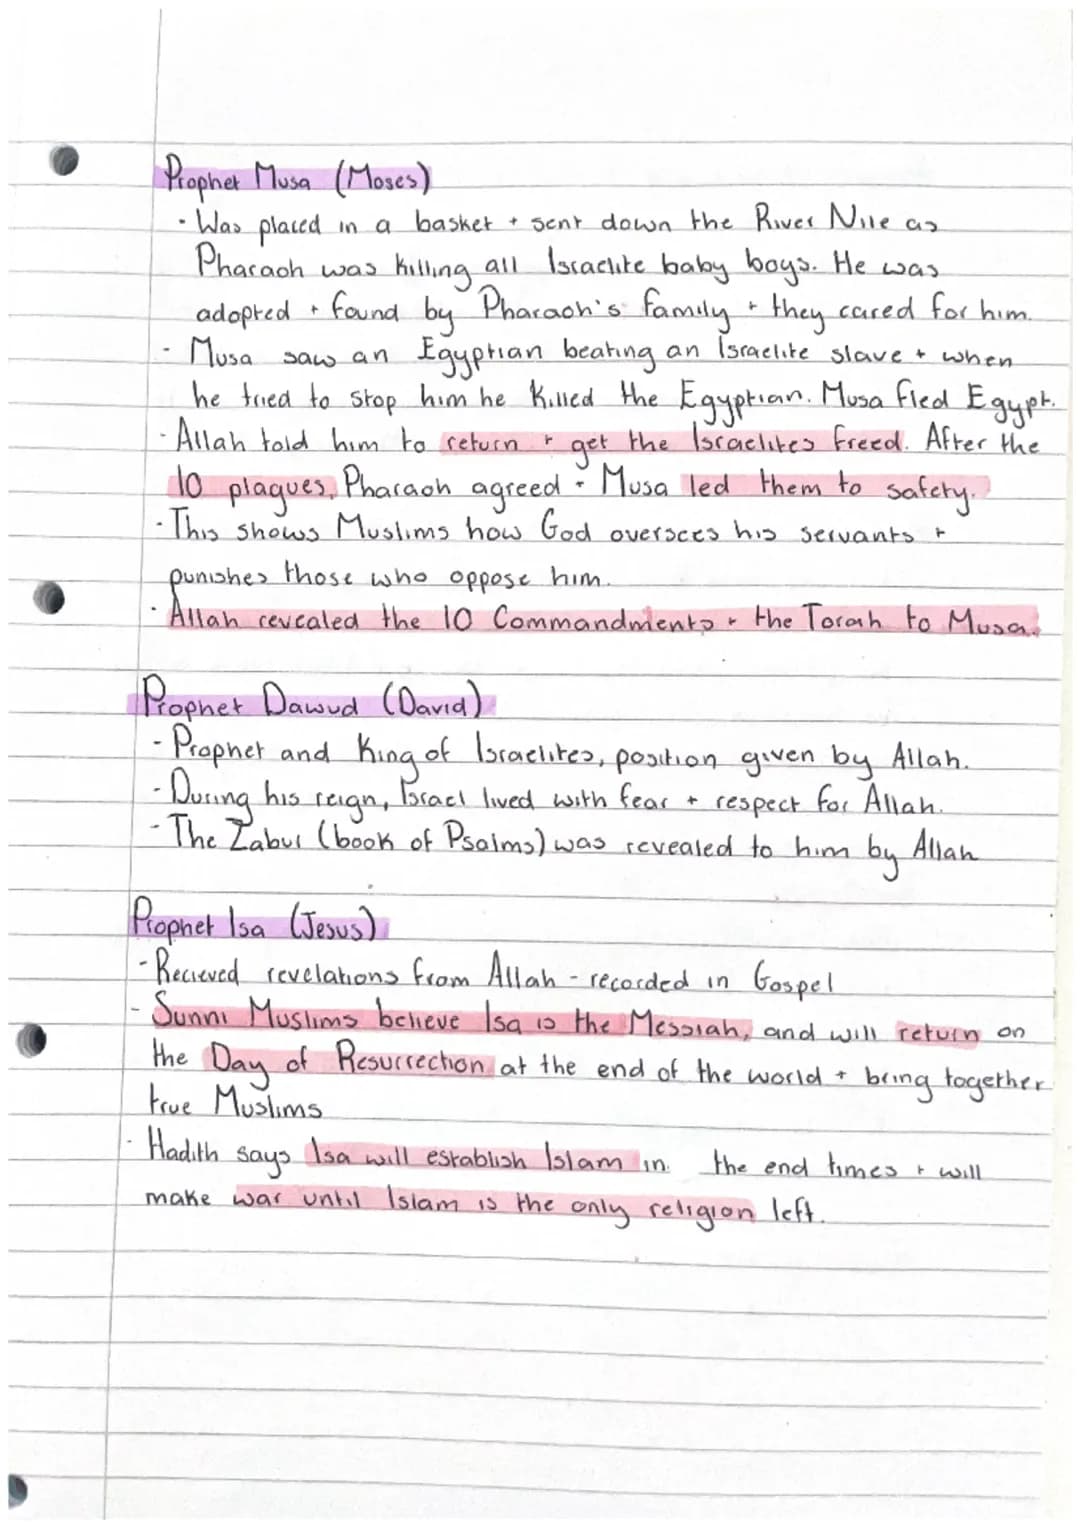 Prophet Musa (Moses)
· Was placed in a basket + sent down the River Nile as
Pharaoh was killing all Israelite baby boys. He was
adopted + found by Pharaoh's family + they cared for him.
- Musa saw an Egyptian beating an Israelite slave + when
he tried to stop him he killed the Egyptian. Musa fled Egypt.
· Allah told him to return + get the Israelites freed. After the
10 plagues, Pharaoh agreed + Musa led them to safety.
· This shows Muslims how God oversees his servants +
punishes those who oppose him.
· Allah revealed the 10 Commandments + the Torah to Musa.
Prophet Dawud (David)
- Prophet and King of Israelites, position given by Allah.
- During his reign, Israel lived with fear + respect for Allah.
- The Zabur (book of Psalms) was revealed to him by Allah
Prophet Isa (Jesus)
- Recieved revelations from Allah - recorded in Gospel
- Sunni Muslims believe Isa is the Messiah, and will return on
the Day of Resurrection at the end of the world + bring together
true Muslims
· Hadith says Isa will establish Islam in the end times + will
make war until Islam is the only religion left.